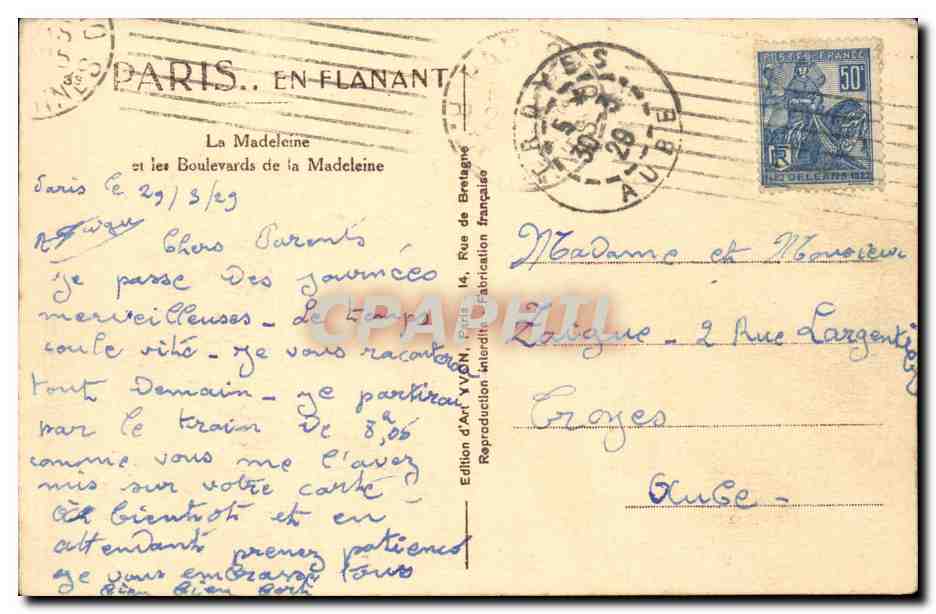 PARIS.. EN FLANANT
La Madeleine
et les Boulevards de la Madeleine
Paris le 29/3/29
Chers Parents
Je passe des journées
merveilleuses - Le temps
coule vite - Je vous raconterai
tout Demain - Je partirai
par le train de 8h,06
comme vous me l'avez
mis sur votre carte
à bientôt et en
attendant prenez patience
Je vous embrasse tous
bien bien fort
Edition d'Art YVON, Paris, 14, Rue de Bretagne
Reproduction interdite Fabrication française
TROYES
5
30 - 3
29
AUBE
POSTES FRANCE
50c
RF
1429 ORLEANS 1929
Madame et Monsieur
Zaigue - 2 Rue Largentier
Troyes
Aube -
CPAPHIL